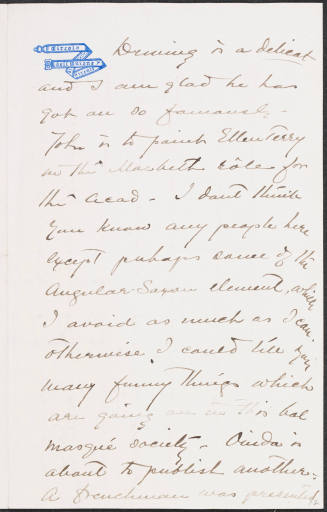 Circolo
dell'Unione
Firenze
Deming is a delicat
and I am glad he has
got on so famously -
John is to paint Ellen Terry
in the Macbeth rôle for
the Acad - I dont think
you know any people here
except perhaps some of the
Anglular-Saxon element, which
I avoid as much as I can.
otherwise, I could tell you
many funny things which
are going on in this bal
masqué society - Ouida is
about to publish another -
A Frenchman was presented